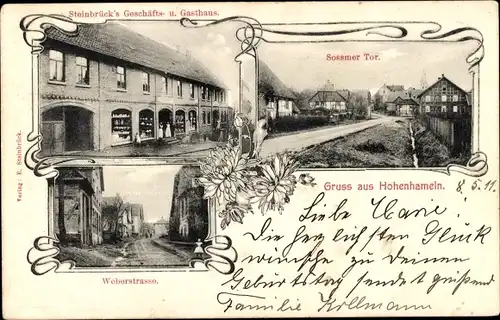 Steinbrück's Geschäfts- u. Gasthaus.
Sossmer Tor.
Verlag: E. Steinbrück.
Gruss aus Hohenhameln. 8.5.11
Liebe Marie!
Die herzlichsten Glück
wünsche zu Deinem
Geburtstag sendet grüßend
Familie Kollmann
Weberstrasse.